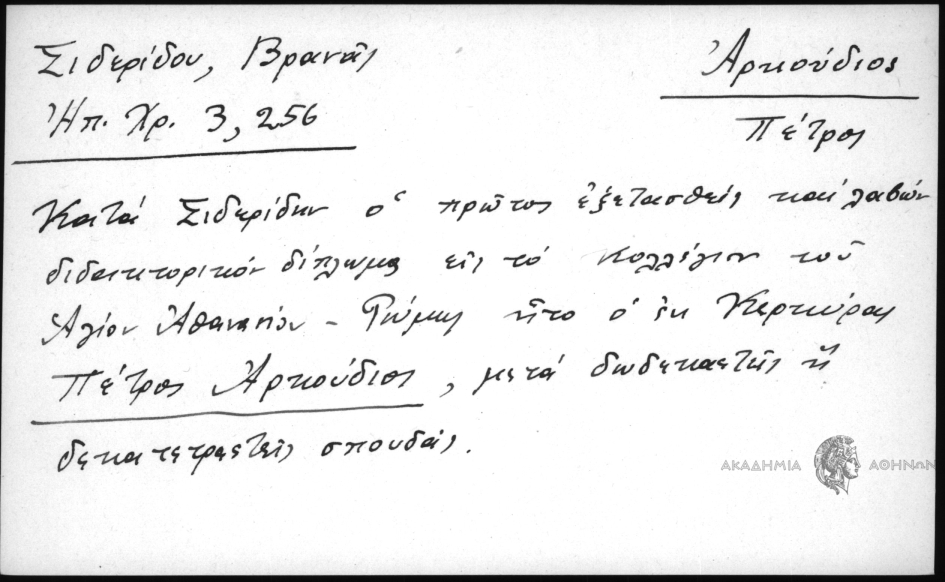 Σιδερίδου, Βρανᾶς
Ἠπ. Χρ. 3, 256
Ἀρκούδιος
Πέτρος
Κατά Σιδερίδην ὁ πρῶτος ἐξετασθείς καί λαβών
διδακτορικόν δίπλωμα εἰς τό Κολλέγιον τοῦ
Ἁγίου Ἀθανασίου - Ρώμης ἦτο ὁ ἐκ Κερκύρας
Πέτρος Ἀρκούδιος, μετά δωδεκαετῆς ἤ
δεκατετραετεῖς σπουδάς.
ΑΚΑΔΗΜΙΑ ΑΘΗΝΩΝ